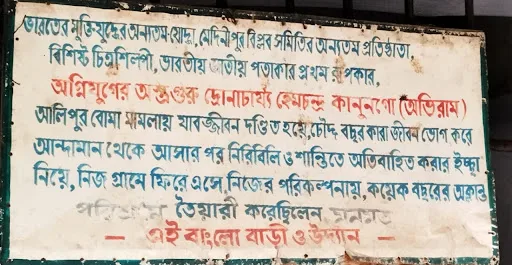 ভারতের মুক্তিযুদ্ধের অন্যতম যোদ্ধা, মেদিনীপুর বিপ্লব সমিতির অন্যতম প্রতিষ্ঠাতা,
বিশিষ্ট চিত্রশিল্পী, ভারতীয় জাতীয় পতাকার প্রথম রূপকার,
অগ্নিযুগের অস্ত্রগুরু দ্রোনাচার্য্য হেমচন্দ্র কানুনগো (অভিরাম)
আলিপুর বোমা মামলায় যাবজ্জীবন দণ্ডিত হয়ে, চৌদ্দ বছর কারা জীবন ভোগ করে
আন্দামান থেকে আসার পর নিরিবিলি ও শান্তিতে অতিবাহিত করার ইচ্ছা
নিয়ে, নিজ গ্রামে ফিরে এসে, নিজের পরিকল্পনায়, কয়েক বছরের অক্লান্ত
পরিশ্রমে তৈয়ারী করেছিলেন
— এই বাংলো বাড়ী ও উদ্যান —